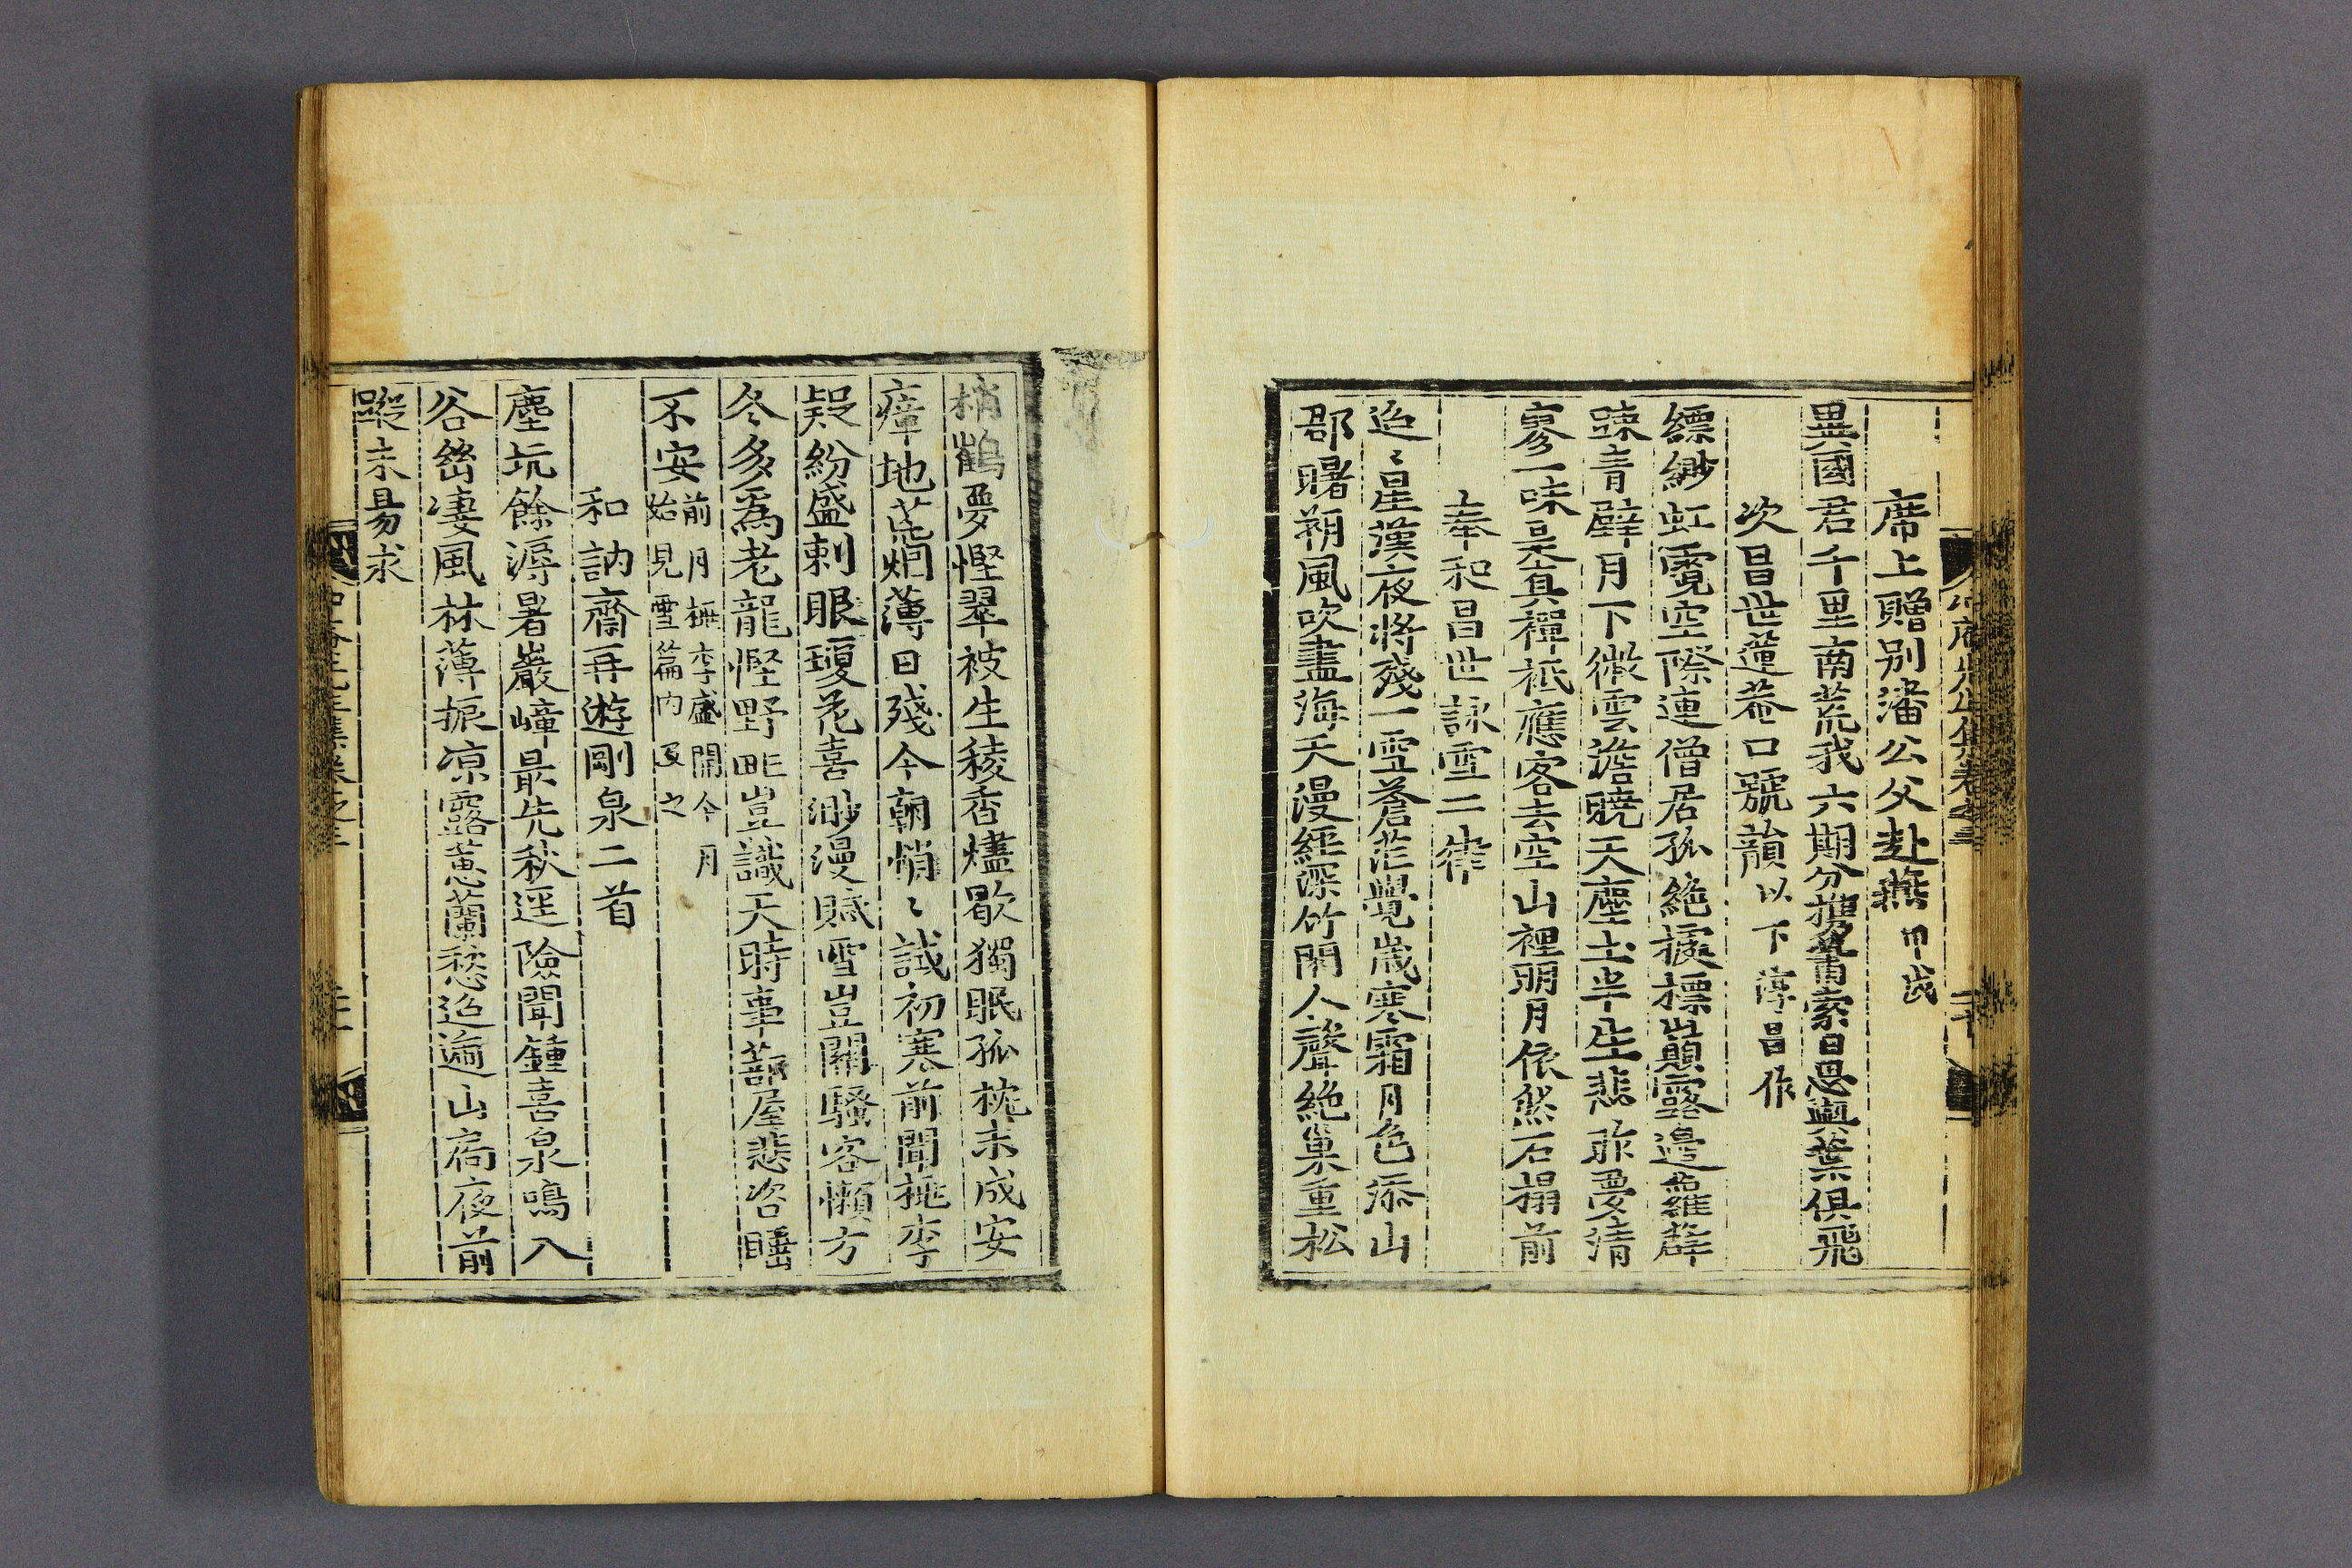 席上贈別潘公父赴燕 甲戌
異國君千里南荒我六期分携蕭索日思與葉俱飛
次昌世蓮菴口號韻 以下淳昌作
縹緲虹霓空際連僧居孤絶㨿標巓露邊蘿薜
踈青壁月下微雲澹曉天塵土半生悲昨夢清
寥一味是真禪秪應客去空山裡明月依然石榻前
奉和昌世詠雪二律
迢〻星漢夜將殘一雪蒼茫覺歲寒霜月色添山
郡曙朔風吹盡海天漫經深竹閣人聲絶巢重松
梢鶴夢慳翠被生稜香燼歇獨眠孤枕未成安
瘴地荒烟薄日殘今朝悄〻試初寒前聞桃李
疑紛盛剌眼瓊花喜渺漫賦雪豈關騷客懶方
冬多爲老龍慳野甿豈識天時事蔀屋悲咨睡
不安 前月桃李盛開今月
始見雪篇内及之
和訥齋再遊剛泉二首
塵坑餘溽暑巖嶂最先秋逕險聞鍾喜泉鳴入
谷幽凄風林薄振凉露蕙蘭愁迢遞山扃夜前
蹤未易求